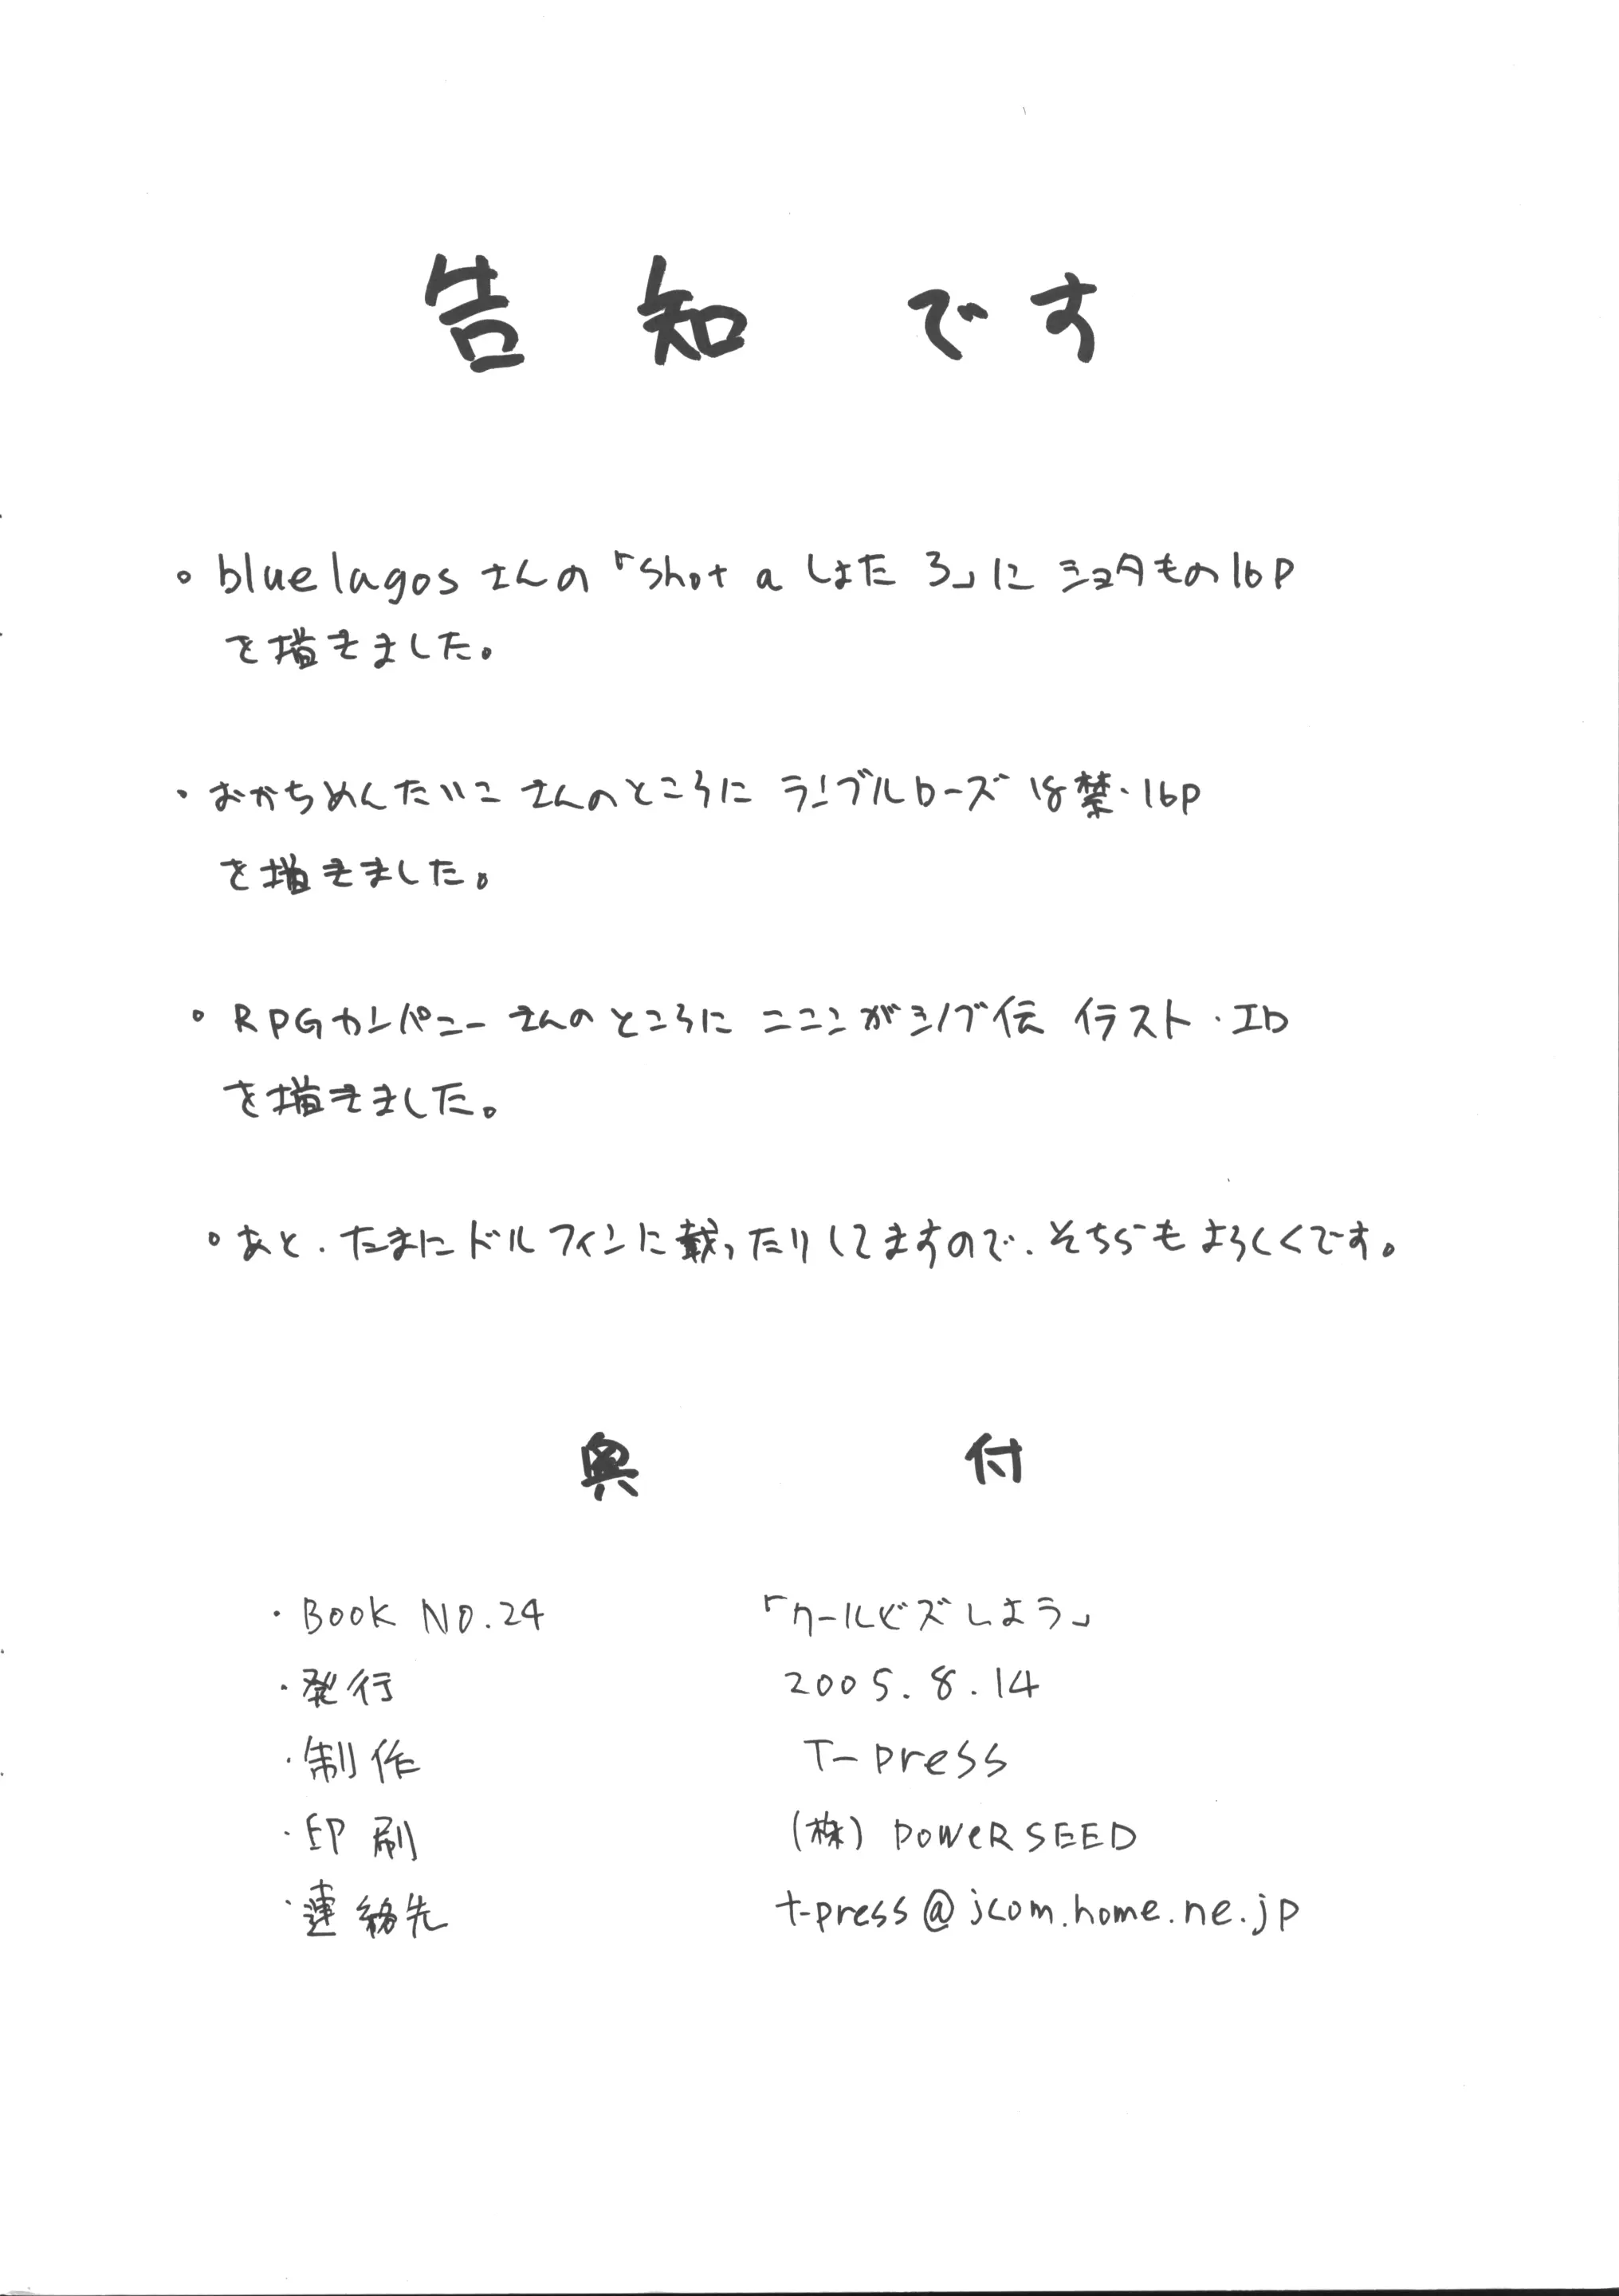 告知です
・bluelagosさんの「shota しょた ろ」にショタもの16P
を描きました。
・おかちめんたいこさんのところに ランブルローズ 18禁・16P
を描きました。
・RPGカンパニーさんのところに ニニンがシノブ伝 イラスト・1P
を描きました。
・あと、たまにドルフィンに載ったりしてますので、そちらもよろしくです。
奥付
・BOOK NO.24 「クールビズしよう」
・発行 2005.8.14
・制作 T-press
・印刷 (株)POWER SEED
・連絡先 t-press@jcom.home.ne.jp